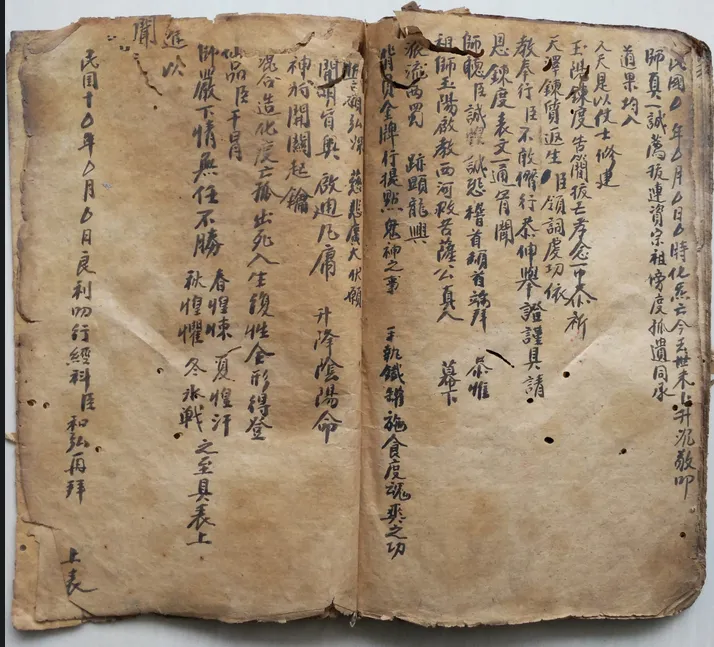 民國〇年〇月〇日〇時化炁亡今去世未上升九敬叩
師真一誠薦拔連資宗祖傍度孤遺同承
道果均入
人天是以仗士修建
玉陽鍊度告簡拔亡孝念一中忝祈
天澤鍊質返生臣領詞虔切依
教奉行臣不敢擅行恭伸舉證謹具請
恩鍊度表文一通百聞
師聰臣誠惶誠恐稽首頓首端拜 恭惟
祖師玉陽啟教西河救苦薩公真人 幕下
派流西蜀 跡顯龍興
背負金牌行提點鬼神之事 手執鐵鑵施食度魂爽之功
弘深 慈悲廣大伏願
開明旨奧 啟迪凡庸 升降陰陽命
神將開關起鑰
混合造化度亡孤出死入生復性全形得登
仙品臣干冒
師嚴下情無任不勝 春惶悚 夏惶汗
秋惶懼 冬冰戰 之至具表上
進以
聞
民国十〇年〇月〇日良利叨行經科臣和弘再拜 上表